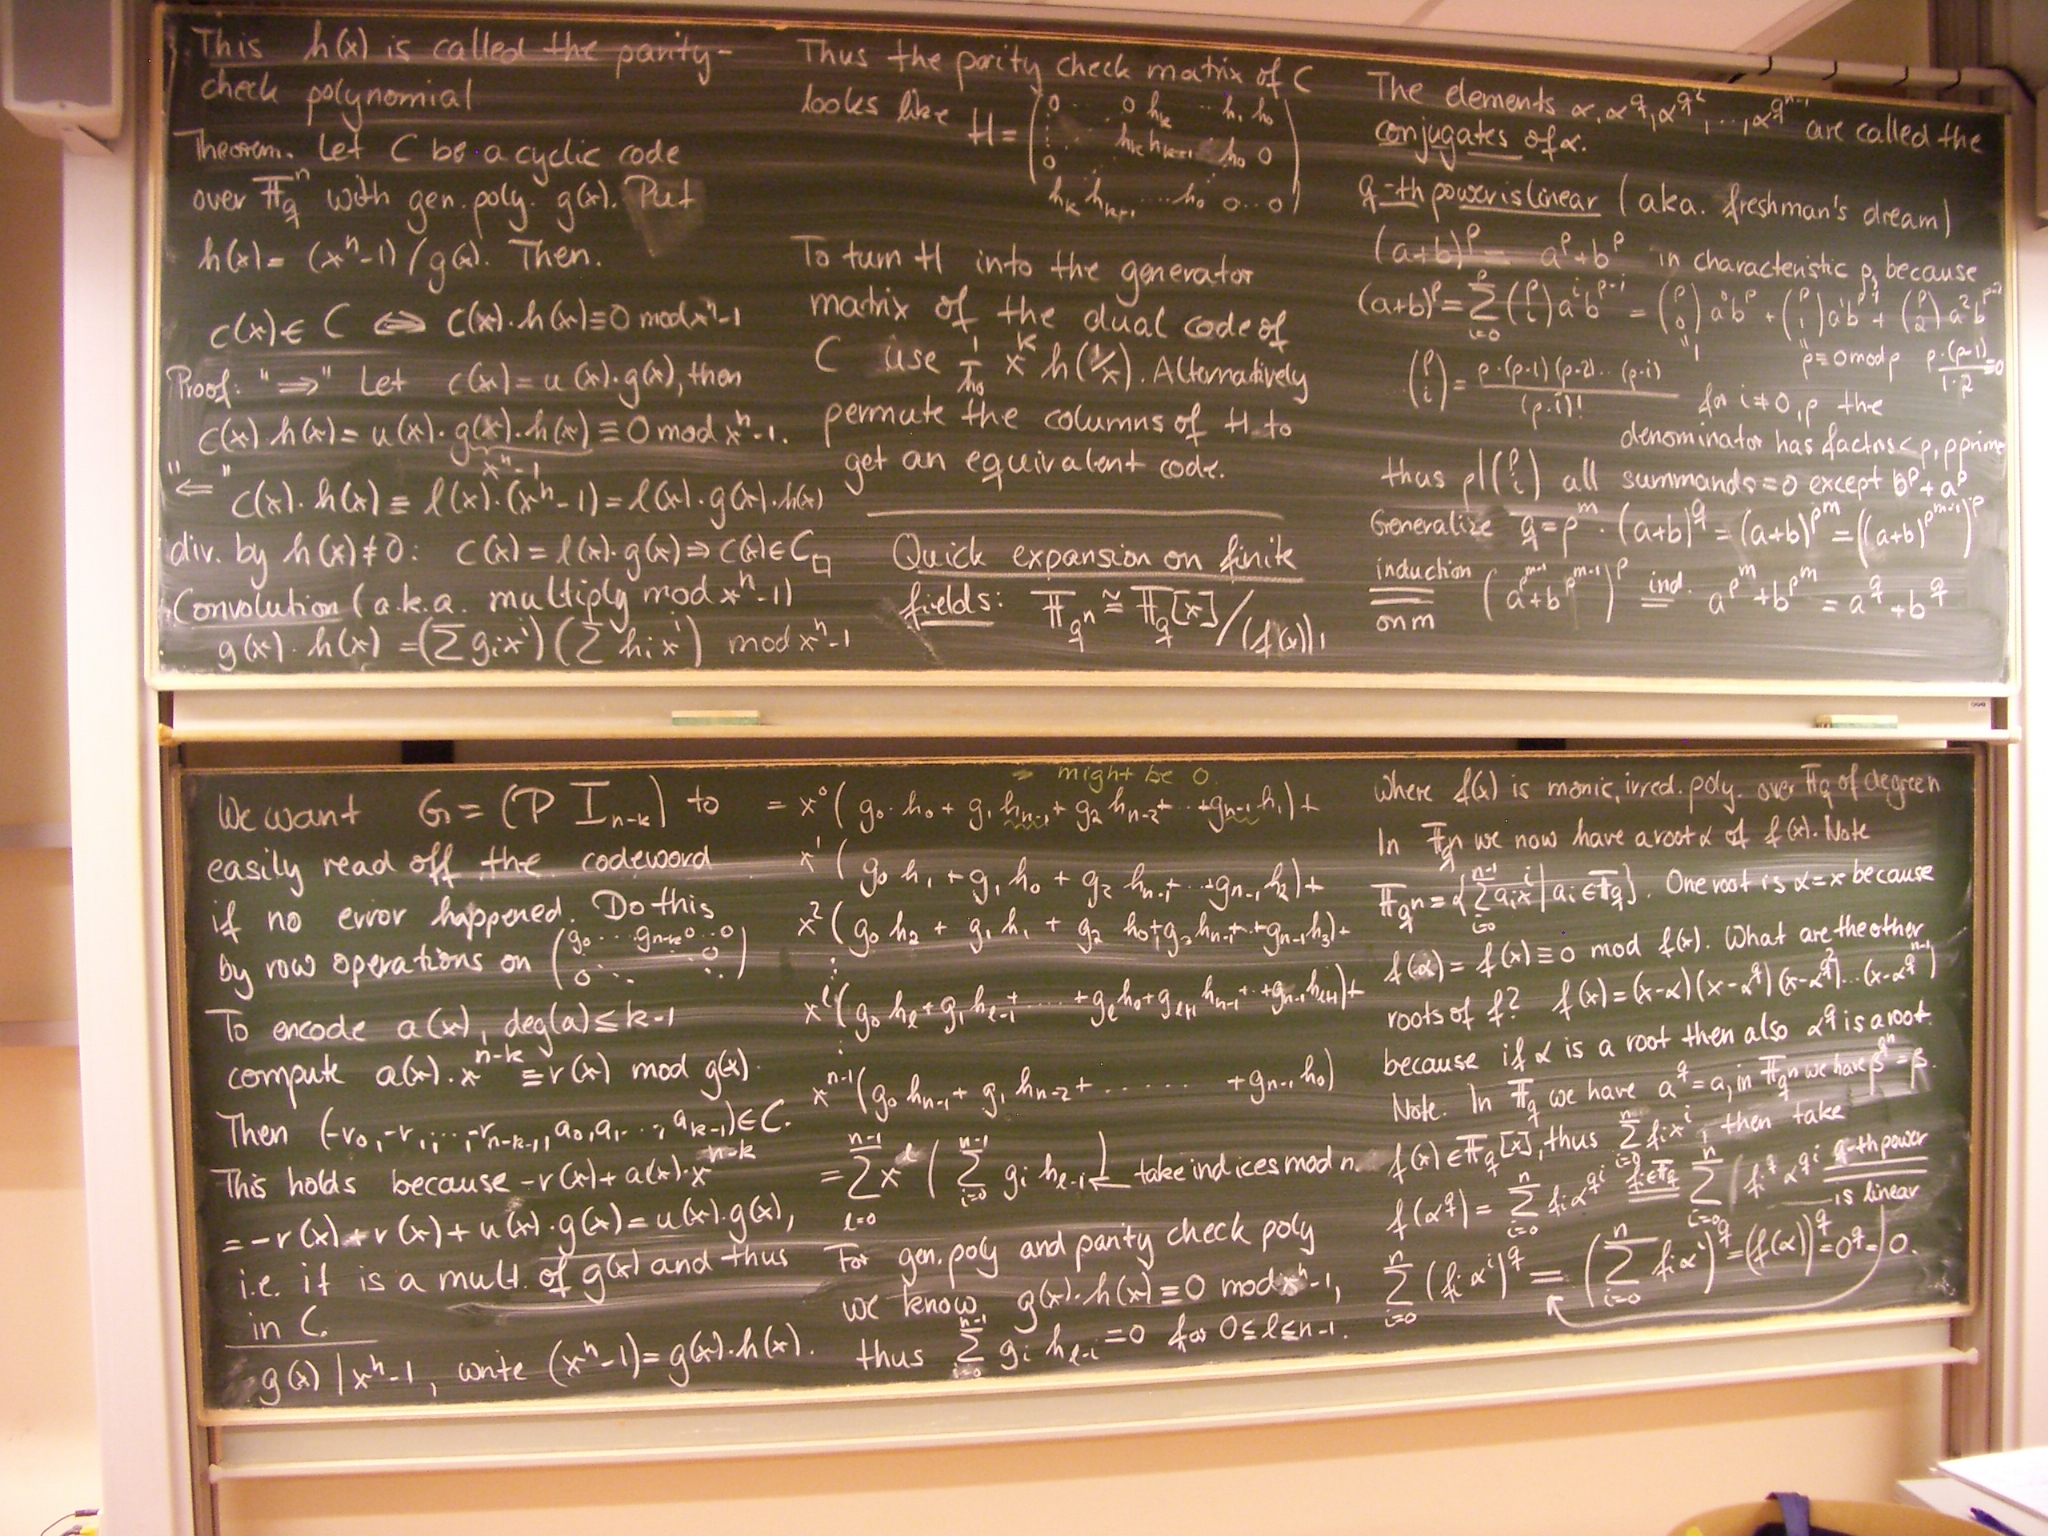 This h(x) is called the parity-
check polynomial
Theorem. Let C be a cyclic code
over F_q^n with gen. poly. g(x). Put
h(x) = (x^n-1)/g(x). Then.
c(x) ∈ C ⇔ c(x)·h(x) ≡ 0 mod x^n-1
Proof: "⇒" Let c(x) = u(x)·g(x), then
c(x)·h(x) = u(x)·g(x)·h(x) ≡ 0 mod x^n-1.
x^n-1
"⇐" c(x)·h(x) ≡ l(x)·(x^n-1) = l(x)·g(x)·h(x)
div. by h(x) ≠ 0: c(x) = l(x)·g(x) ⇒ c(x) ∈ C □
Convolution (a.k.a. multiply mod x^n-1)
g(x)·h(x) = (Σ g_i x^i)(Σ h_i x^i) mod x^n-1
Thus the parity check matrix of C
looks like H = (0 ... 0 h_k ... h_1 h_0
h_k h_{k+1} h_0 0
0
h_k h_{k+1} ... h_0 0...0)
To turn H into the generator
matrix of the dual code of
C use 1/h_0 x^k h(1/x). Alternatively
permute the columns of H to
get an equivalent code.
Quick expansion on finite
fields: F_{q^n} ≅ F_q[x]/(f(x)),
The elements α, α^q, α^{q^2}, ..., α^{q^{n-1}} are called the
conjugates of α.
q-th power is linear (aka. freshman's dream)
(a+b)^p = a^p + b^p in characteristic p, because
(a+b)^p = Σ_{i=0}^p (p i) a^i b^{p-i} = (p 0) a^0 b^p + (p 1) a^1 b^{p-1} + (p 2) a^2 b^{p-2}
"1 " p ≡ 0 mod p p·(p-1)/1·2 = 0
(p i) = p·(p-1)(p-2)...(p-i)/(p-i)! for i ≠ 0, p the
denominator has factors < p, p prime
thus p|(p i) all summands = 0 except b^p + a^p
Generalize q = p^m. (a+b)^q = (a+b)^{p^m} = ((a+b)^{p^{m-1}})^p
induction on m = (a^{p^{m-1}} + b^{p^{m-1}})^p ind. = a^{p^m} + b^{p^m} = a^q + b^q
We want G = (P I_{n-k}) to
easily read off the codeword
if no error happened. Do this
by row operations on (g_0 ... g_{n-k} 0 ... 0
0 ... 0)
To encode a(x), deg(a) ≤ k-1
compute a(x)·x^{n-k} ≡ r(x) mod g(x).
Then (-r_0, -r_1, ..., -r_{n-k-1}, a_0, a_1, ..., a_{k-1}) ∈ C.
This holds because -r(x) + a(x)·x^{n-k}
= -r(x) + r(x) + u(x)·g(x) = u(x)·g(x),
i.e. it is a mult. of g(x) and thus
in C.
g(x) | x^n-1, write (x^n-1) = g(x)·h(x).
~ might be 0.
= x^0 (g_0·h_0 + g_1 h_{n-1} + g_2 h_{n-2} + ... + g_{n-1} h_1) +
x^1 (g_0 h_1 + g_1 h_0 + g_2 h_{n-1} + ... + g_{n-1} h_2) +
x^2 (g_0 h_2 + g_1 h_1 + g_2 h_0 + g_3 h_{n-1} + ... + g_{n-1} h_3) +
⋮
x^l (g_0 h_l + g_1 h_{l-1} + ... + g_l h_0 + g_{l+1} h_{n-1} + ... + g_{n-1} h_{l+1}) +
⋮
x^{n-1} (g_0 h_{n-1} + g_1 h_{n-2} + ... + g_{n-1} h_0)
= Σ_{l=0}^{n-1} x^l (Σ_{i=0}^{n-1} g_i h_{l-i}) ← take indices mod n.
For gen. poly and parity check poly
we know g(x)·h(x) ≡ 0 mod x^n-1,
thus Σ_{i=0}^{n-1} g_i h_{l-i} = 0 for 0 ≤ l ≤ n-1.
where f(x) is monic, irred. poly. over F_q of degree n
In F_{q^n} we now have a root α of f(x). Note
F_{q^n} = {Σ_{i=0}^{n-1} a_i x^i | a_i ∈ F_q}. One root is α = x because
f(α) = f(x) ≡ 0 mod f(x). What are the other
roots of f? f(x) = (x-α)(x-α^q)(x-α^{q^2})...(x-α^{q^{n-1}})
because if α is a root then also α^q is a root.
Note. In F_q we have a^q = a, in F_{q^n} we have β^{q^n} = β.
f(x) ∈ F_q[x], thus Σ_{i=0}^n f_i x^i, then take
f(α^q) = Σ_{i=0}^n f_i α^{qi} f_i∈F_q = Σ_{i=0}^n f_i^q α^{qi} q-th power
is linear
Σ_{i=0}^n (f_i α^i)^q = (Σ_{i=0}^n f_i α^i)^q = (f(α))^q = 0^q = 0.